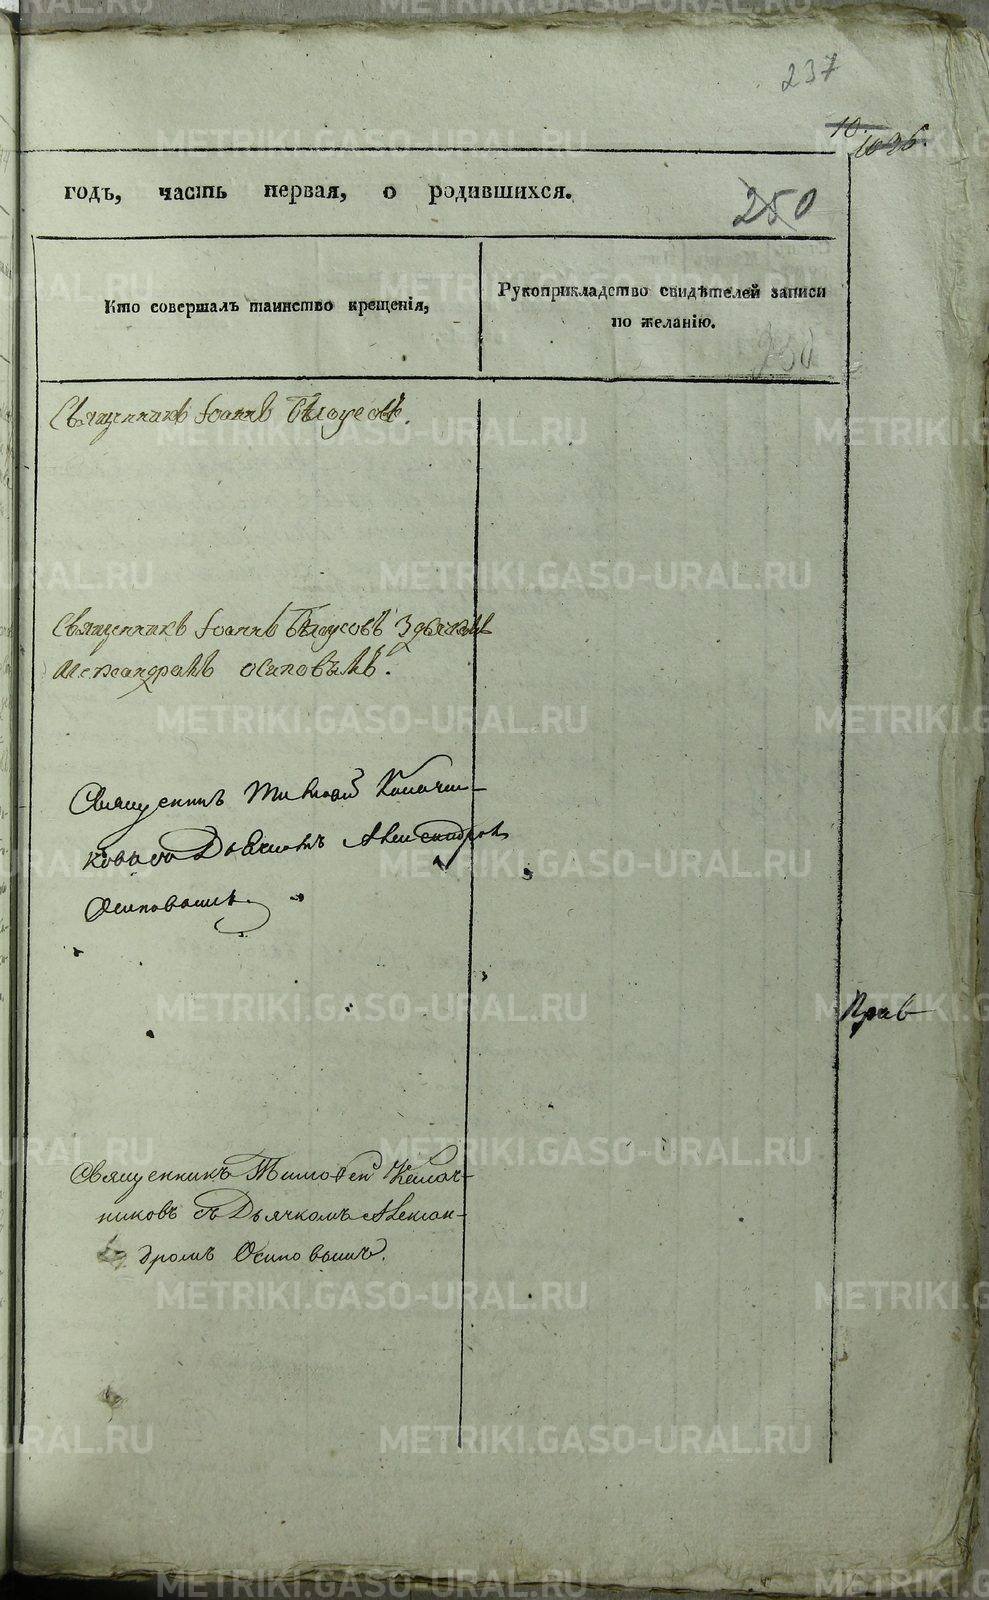 237
10.
1036.
годъ, часть первая, о родившихся.
250
Кто совершалъ таинство крещенія,
Рукоприкладство свидѣтелей записи
по желанію.
250
Священникъ Іоаннъ Бѣлоусовъ.
Священникъ Іоаннъ Бѣлоусовъ Здьячкомъ
Александромъ Осиповымъ.
Священникъ Тимофей Калачни-
ковъ съ Дьячкомъ Александром
Осиповымъ.
Прав
Священникъ Тимофей Калач-
никовъ съ Дьячкомъ Алексан-
дромъ Осиповымъ.
METRIKI.GASO-URAL.RU